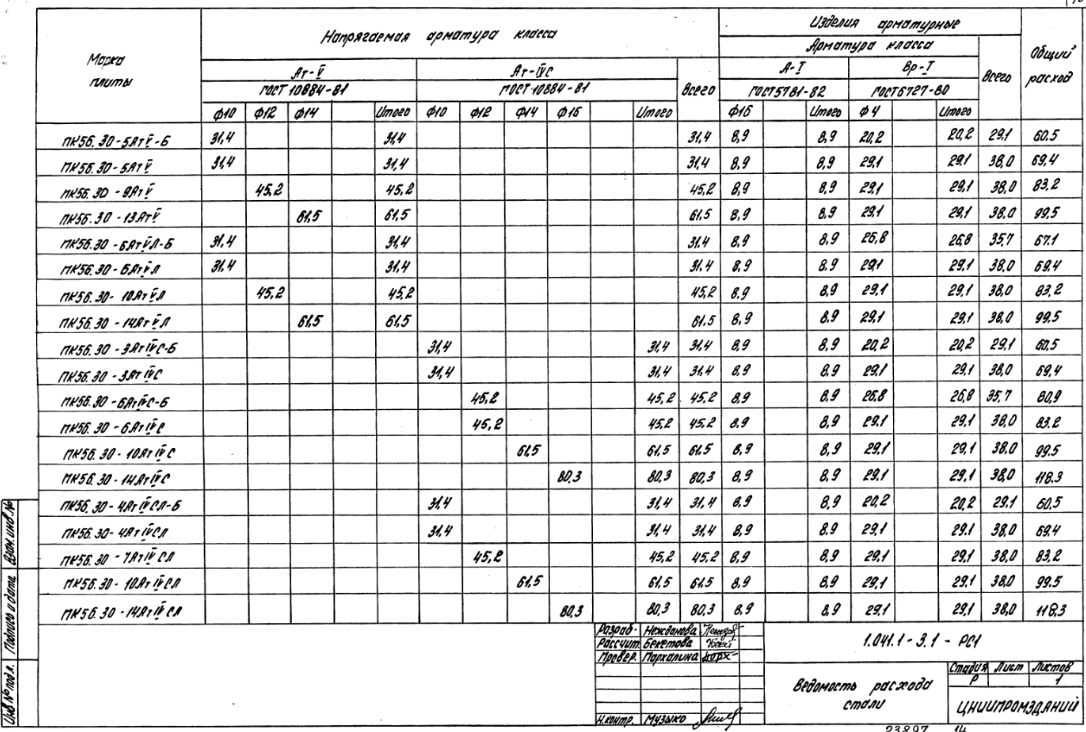 Марка плиты
Напрягаемая арматура класса
Изделия арматурные
Арматура класса
Общий расход
Ат-V
Ат-IVС
Всего
А-I
Вр-I
Всего
ГОСТ 10884-81
ГОСТ 10884-81
ГОСТ 5781-82
ГОСТ 6727-80
ф10 ф12 ф14 Итого ф10 ф12 ф14 ф16 Итого ф16 Итого ф4 Итого
ПК56.30-5АтV-Б 31,4 31,4 31,4 8,9 8,9 20,2 20,2 29,1 60,5
ПК56.30-5АтV 31,4 31,4 31,4 8,9 8,9 29,1 29,1 38,0 69,4
ПК56.30-9АтV 45,2 45,2 45,2 8,9 8,9 29,1 29,1 38,0 83,2
ПК56.30-13АтV 61,5 61,5 61,5 8,9 8,9 29,1 29,1 38,0 99,5
ПК56.30-6АтVЛ-Б 31,4 31,4 31,4 8,9 8,9 26,8 26,8 35,7 67,1
ПК56.30-6АтVЛ 31,4 31,4 31,4 8,9 8,9 29,1 29,1 38,0 69,4
ПК56.30-10АтVЛ 45,2 45,2 45,2 8,9 8,9 29,1 29,1 38,0 83,2
ПК56.30-14АтVЛ 61,5 61,5 61,5 8,9 8,9 29,1 29,1 38,0 99,5
ПК56.30-3АтIVС-Б 31,4 31,4 31,4 8,9 8,9 20,2 20,2 29,1 60,5
ПК56.30-3АтIVС 31,4 31,4 31,4 8,9 8,9 29,1 29,1 38,0 69,4
ПК56.30-6АтIVС-Б 45,2 45,2 45,2 8,9 8,9 26,8 26,8 35,7 80,9
ПК56.30-6АтIVС 45,2 45,2 45,2 8,9 8,9 29,1 29,1 38,0 83,2
ПК56.30-10АтIVС 61,5 61,5 61,5 8,9 8,9 29,1 29,1 38,0 99,5
ПК56.30-14АтIVС 80,3 80,3 80,3 8,9 8,9 29,1 29,1 38,0 118,3
ПК56.30-4АтIVСЛ-Б 31,4 31,4 31,4 8,9 8,9 20,2 20,2 29,1 60,5
ПК56.30-4АтIVСЛ 31,4 31,4 31,4 8,9 8,9 29,1 29,1 38,0 69,4
ПК56.30-7АтIVСЛ 45,2 45,2 45,2 8,9 8,9 29,1 29,1 38,0 83,2
ПК56.30-10АтIVСЛ 61,5 61,5 61,5 8,9 8,9 29,1 29,1 38,0 99,5
ПК56.30-14АтIVСЛ 80,3 80,3 80,3 8,9 8,9 29,1 29,1 38,0 118,3
Разраб. Нежданова
Рассчит. Бекетова
Провер. Пархалина
Н.контр. Музыко
1.041.1-3.1-РС1
Ведомость расхода стали
Стадия Лист Листов
Р 1
ЦНИИПРОМЗДАНИЙ
23897 14
Инв.№ подл. Подпись и дата Взам.инв.№